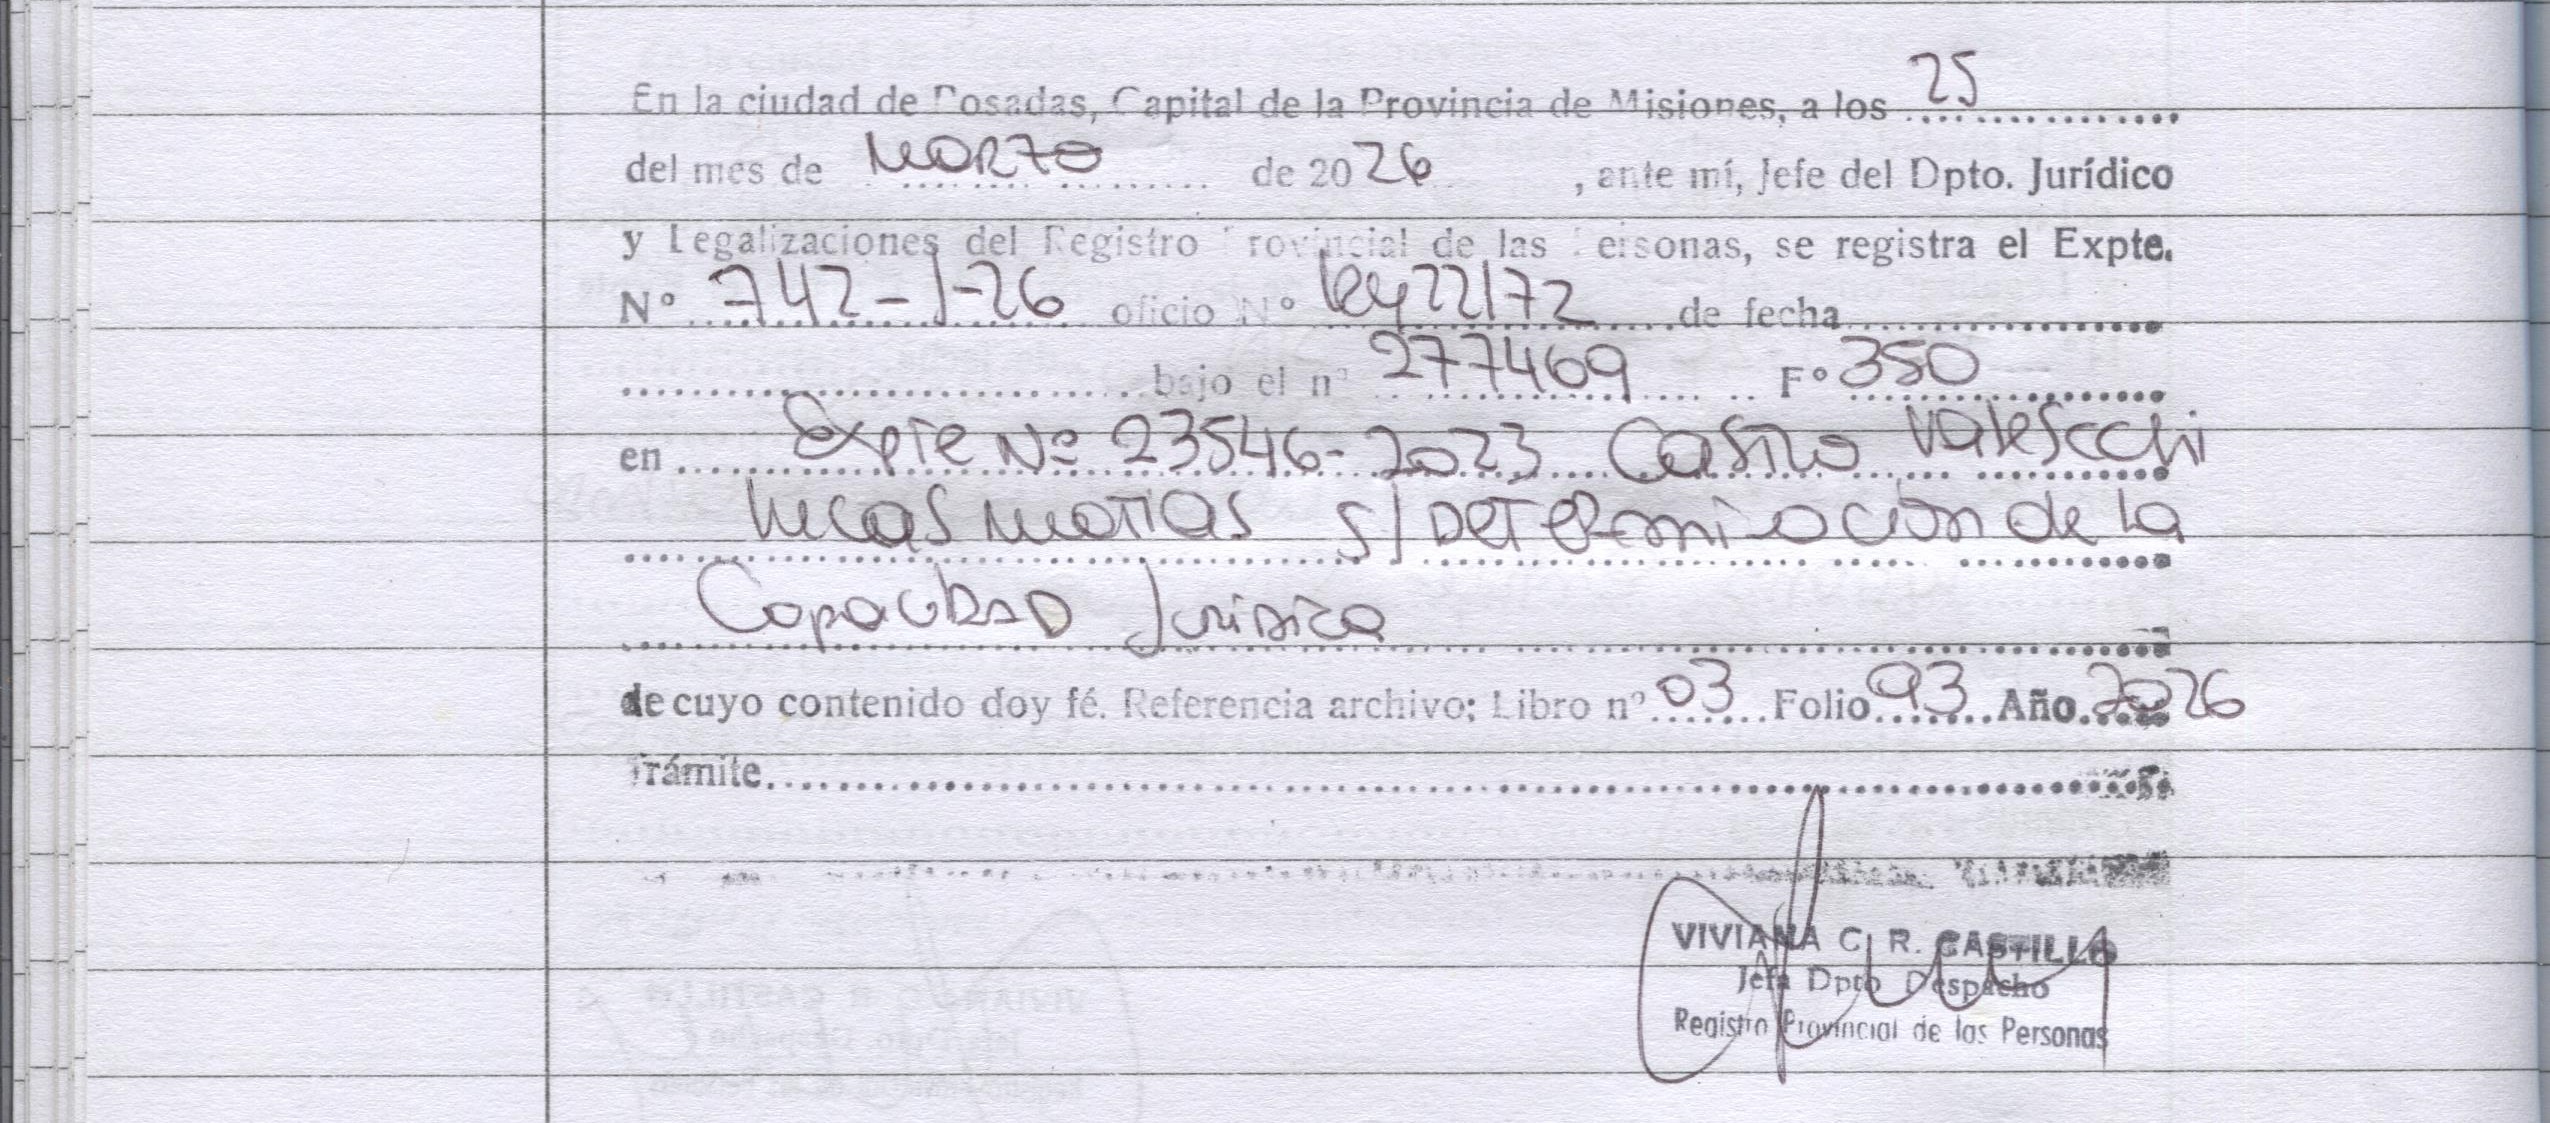 En la ciudad de Posadas, Capital de la Provincia de Misiones, a los 25
del mes de Marzo de 2026, ante mí, Jefe del Dpto. Jurídico
y Legalizaciones del Registro Provincial de las Personas, se registra el Expte.
Nº 742-J-26 oficio Nº Ley 22172 de fecha
bajo el nº 277469 Fº 350
en Expte Nº 23546-2023 Castro
Lucas Matias s/ Determinacion de la
Capacidad Juridica
de cuyo contenido doy fé. Referencia archivo; Libro nº 03 Folio 93 Año 2026
Trámite
VIVIANA C. R. CASTILLO
Jefa Dpto Despacho
Registro Provincial de las Personas